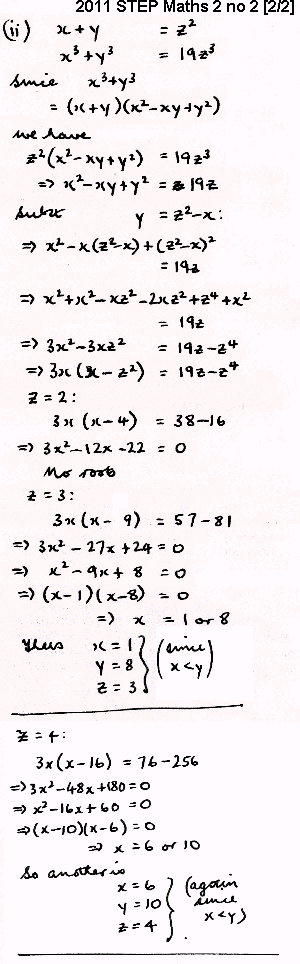 2011 STEP Maths 2 no 2 [2/2]
(ii) x + y = z²
x³ + y³ = 19z³
since x³+y³
= (x+y)(x²-xy+y²)
we have
z²(x²-xy+y²) = 19z³
=> x²-xy+y² = 19z
subst y = z²-x:
=> x²-x(z²-x)+(z²-x)²
= 19z
=> x²+x²-xz²-2xz²+z⁴+x²
= 19z
=> 3x²-3xz² = 19z-z⁴
=> 3x(x-z²) = 19z-z⁴
z = 2:
3x(x-4) = 38-16
=> 3x²-12x-22 = 0
No roots
z = 3:
3x(x-9) = 57-81
=> 3x²-27x+24 = 0
=> x²-9x+8 = 0
=> (x-1)(x-8) = 0
=> x = 1 or 8
Thus x = 1
y = 8 (since x<y)
z = 3
z = 4:
3x(x-16) = 76-256
=> 3x²-48x+180 = 0
=> x²-16x+60 = 0
=> (x-10)(x-6) = 0
=> x = 6 or 10
So another is
x = 6 (again
y = 10 since
z = 4 x<y)